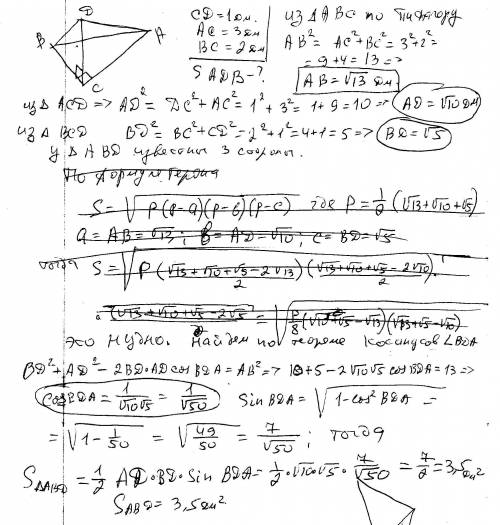 D
B
A
C
CD = 1 дм.
AC = 3 дм
BC = 2 дм
S ADB - ?
из Δ ABC по Пифагору
AB² = AC² + BC² = 3² + 2² =
= 9 + 4 = 13 =>
AB = √13 дм
из Δ ACD => AD² = DC² + AC² = 1² + 3² = 1 + 9 = 10 => AD = √10 дм
из Δ BCD BD² = BC² + CD² = 2² + 1² = 4 + 1 = 5 => BD = √5
У Δ ABD известны 3 стороны.
По формуле Герона
S = √P(P-a)(P-b)(P-c) где P = 1/2 (√13 + √10 + √5)
a = AB = √13; b = AD = √10; c = BD = √5
тогда S = √P (√13 + √10 + √5 - 2√13)/2 (√13 + √10 + √5 - 2√10)/2
· (√13 + √10 + √5 - 2√5)/2 = √P/8 (√10 + √5 - √13)(√13 + √5 - √10)
это нудно. Найдем по теореме косинусов ∠BDA
BD² + AD² - 2BD·AD cos BDA = AB² => 10 + 5 - 2√10√5 cos BDA = 13 =>
cos BDA = 1/√10√5 = 1/√50 Sin BDA = √1 - cos² BDA =
= √1 - 1/50 = √49/50 = 7/√50; тогда
S ΔABD = 1/2 AD·BD·Sin BDA = 1/2 · √10√5 · 7/√50 = 7/2 = 3,5 дм²
S ABD = 3,5 дм²